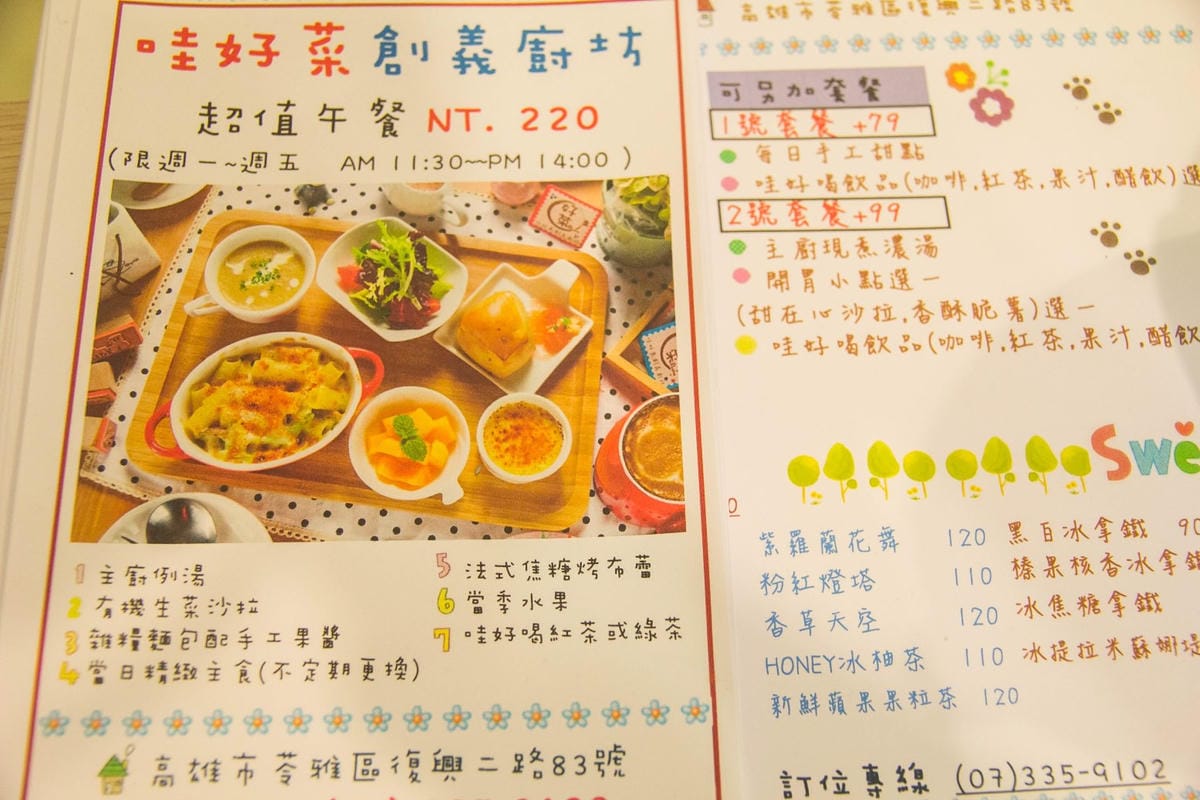 哇好菜創義廚坊
超值午餐 NT. 220
(限週一~週五 AM 11:30~~PM 14:00 )
1 主廚例湯
2 有機生菜沙拉
3 雜糧麵包配手工果醬
4 當日精緻主食(不定期更換)
5 法式焦糖烤布蕾
6 當季水果
7 哇好喝紅茶或綠茶
高雄市苓雅區復興二路83號
高雄市苓雅區復興二路83號
可另加套餐
1號套餐 +79
每日手工甜點
哇好喝飲品(咖啡,紅茶,果汁,醋飲)選
2號套餐 +99
主廚現煮濃湯
開胃小點選一
(甜在心沙拉,香酥脆薯)選一
哇好喝飲品(咖啡,紅茶,果汁,醋飲
Swe
紫羅蘭花舞 120
粉紅燈塔 110
香草天空 120
HONEY冰柚茶 110
新鮮蘋果果粒茶 120
黑白冰拿鐵 90
榛果核香冰拿鐵
冰焦糖拿鐵
冰提拉米蘇娜堤
訂位專線 (07)335-9102